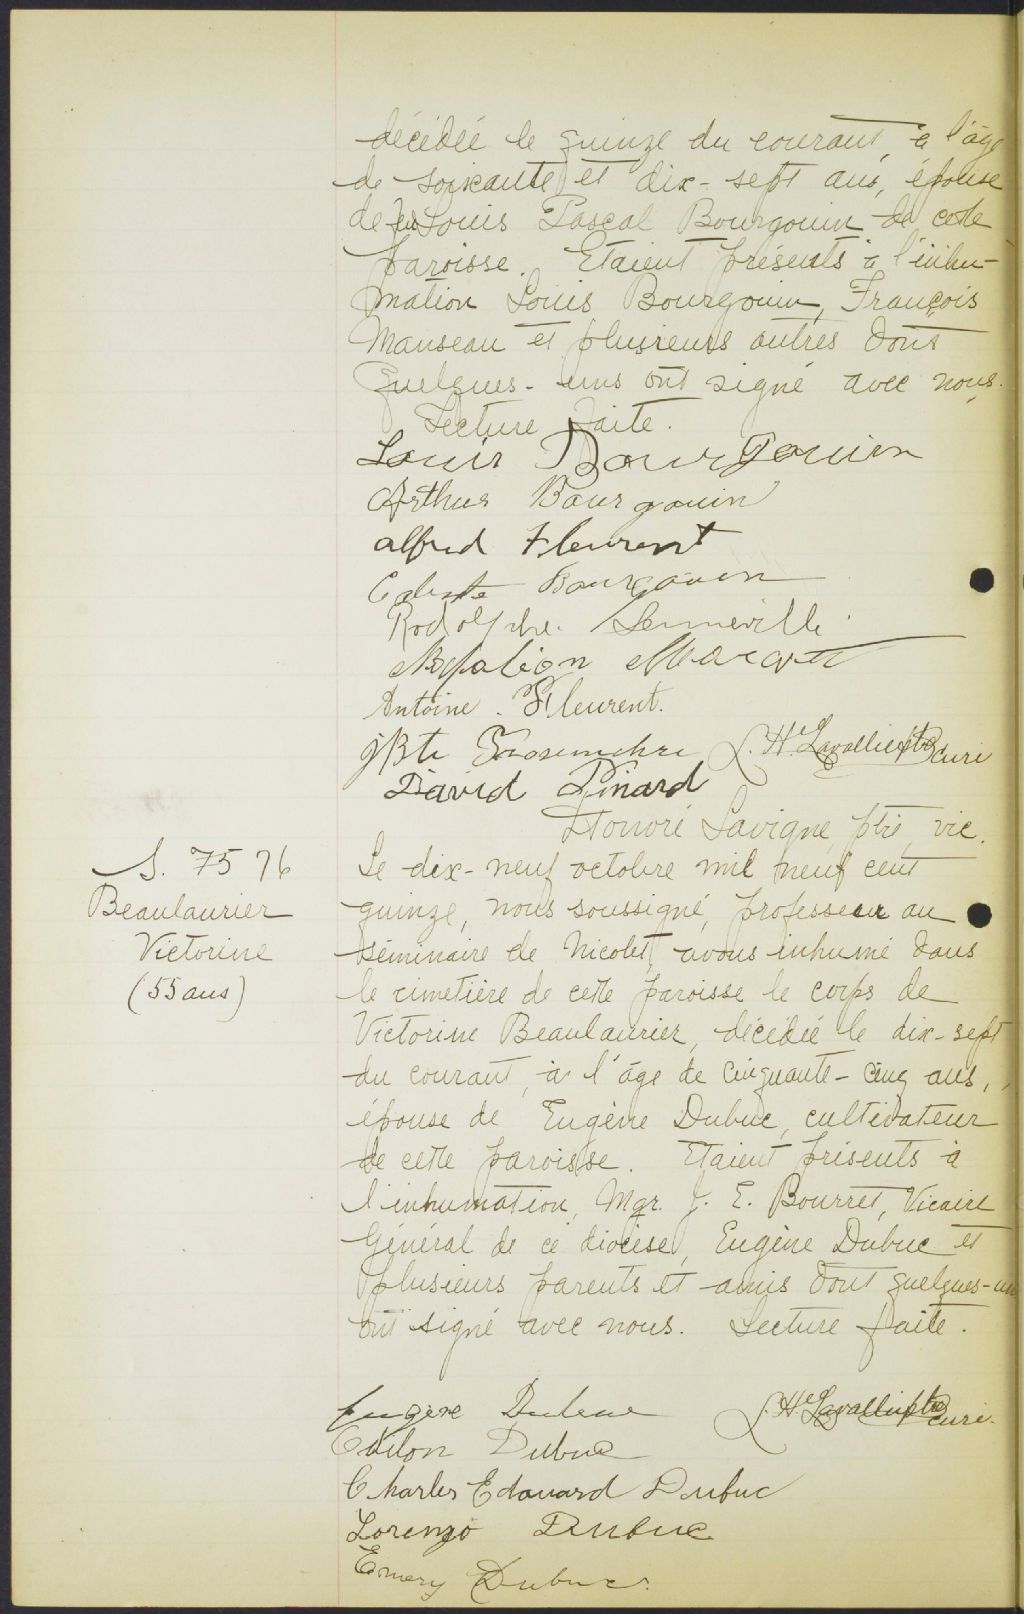 décédée le quinze du courant, à l'âge
de soixante et dix-sept ans, épouse
de feu Louis Pascal Bourgouin de cette
paroisse. Etaient présents à l'inhu-
mation Louis Bourgouin, François
Manseau et plusieurs autres dont
quelques-uns ont signé avec nous.
Lecture faite.
Louis Bourgouin
Arthur Bourgouin
alfred Fleurent
Bourgouin
Rodolphe Lenneville
Napoléon
Antoine Fleurent.
JBte
Lavallée ptre curé
David Pinard
Honoré Lavigne, ptre, vic.
S. 75 76
Beaulaurier
Victorine
(55 ans)
Le dix-neuf octobre mil neuf cent
quinze, nous soussigné, professeur au
séminaire de Nicolet, avons inhumé dans
le cimetière de cette paroisse le corps de
Victorine Beaulaurier, décédée le dix-sept
du courant, à l'âge de cinquante-cinq ans,
épouse de Eugène Dubuc, cultivateur
de cette paroisse. Etaient présents à
l'inhumation, Mgr. J. E. Bourret, Vicaire
Général de ce diocèse, Eugène Dubuc et
plusieurs parents et amis dont quelques-uns
ont signé avec nous. Lecture faite.
Eugène Dubuc
Lavallée ptre curé.
Odilon Dubuc
Charles Edouard Dubuc
Lorenzo Dubuc
Emery Dubuc.